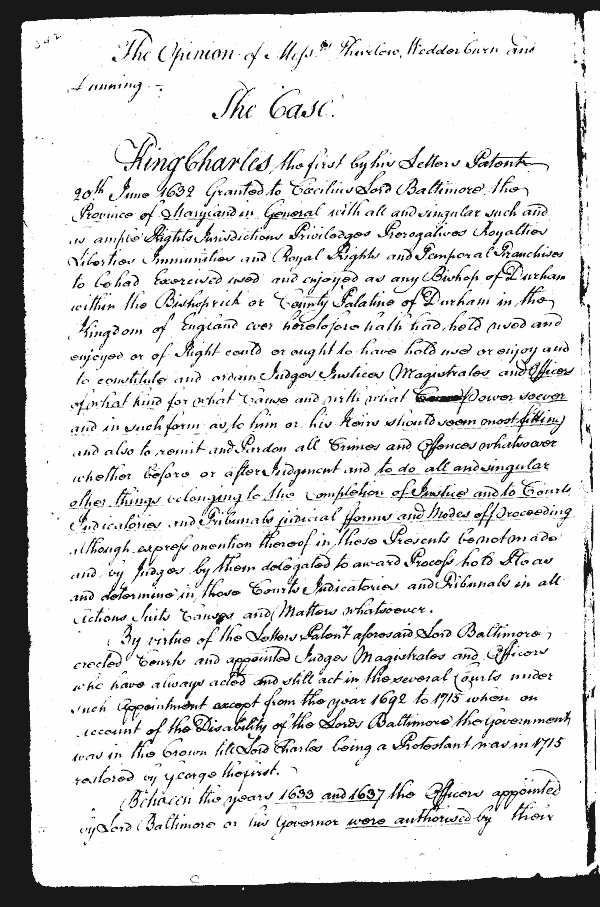 The Opinion of Mess.rs Thurlow, Wedderburn and
Dunning –
The Case.
King Charles the first by his Letters Patent
20th June 1632 Granted to Cœcilius Lord Baltimore, the
Province of Maryland in General with all and singular such and
as ample Rights Jurisdictions Priviledges Prerogatives Royalties
Liberties Immunities and Royal Rights and Temporal Franchises
to be had Exercised used and enjoyed as any Bishop of Durham
within the Bishoprick or County Palatine of Durham in the
Kingdom of England ever heretofore hath had, held used and
enjoyed or of Right could or ought to have hold use or enjoy and
to constitute and ordain Judges Justices Magistrates and Officers
of what kind for what Cause and with what Power soever
and in such form as to him or his Heirs should seem most fitting
and also to remit and Pardon all Crimes and Offences whatsoever
whether before or after Judgment and to do all and singular
other things belonging to the Completion of Justice and to Courts
Judicatories and Tribunals judicial fforms and Modes of Proceeding
although express mention thereof in these Presents be not made
and by Judges by them delegated to award Process hold Pleas
and determine in those Courts Judicatories and Tribunals in all
Actions Suits Causes and Matters whatsoever.
By virtue of the Letters Patent aforesaid Lord Baltimore
erected Courts and appointed Judges Magistrates and Officers
who have always acted and still act in the several Courts under
such Appointment except from the year 1692 to 1715 when on
account of the Disability of the Lords Baltimore the Government
was in the Crown till Lord Charles being a Protestant was in 1715
restored by George the first.
Between the years 1633 and 1637 the Officers appointed
by Lord Baltimore or his Governor were authorised by their